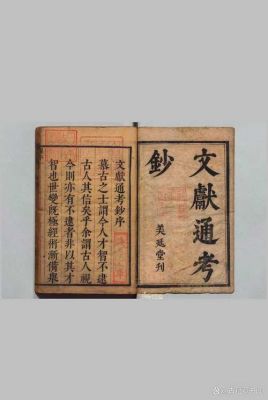 文獻通考
鈔
美延堂刊
文獻通考鈔序
慕古之士謂今人才智不逮
古人其信矣乎余謂古人視
今則亦有不逮者非以其才
智也世變既極經術漸備衆